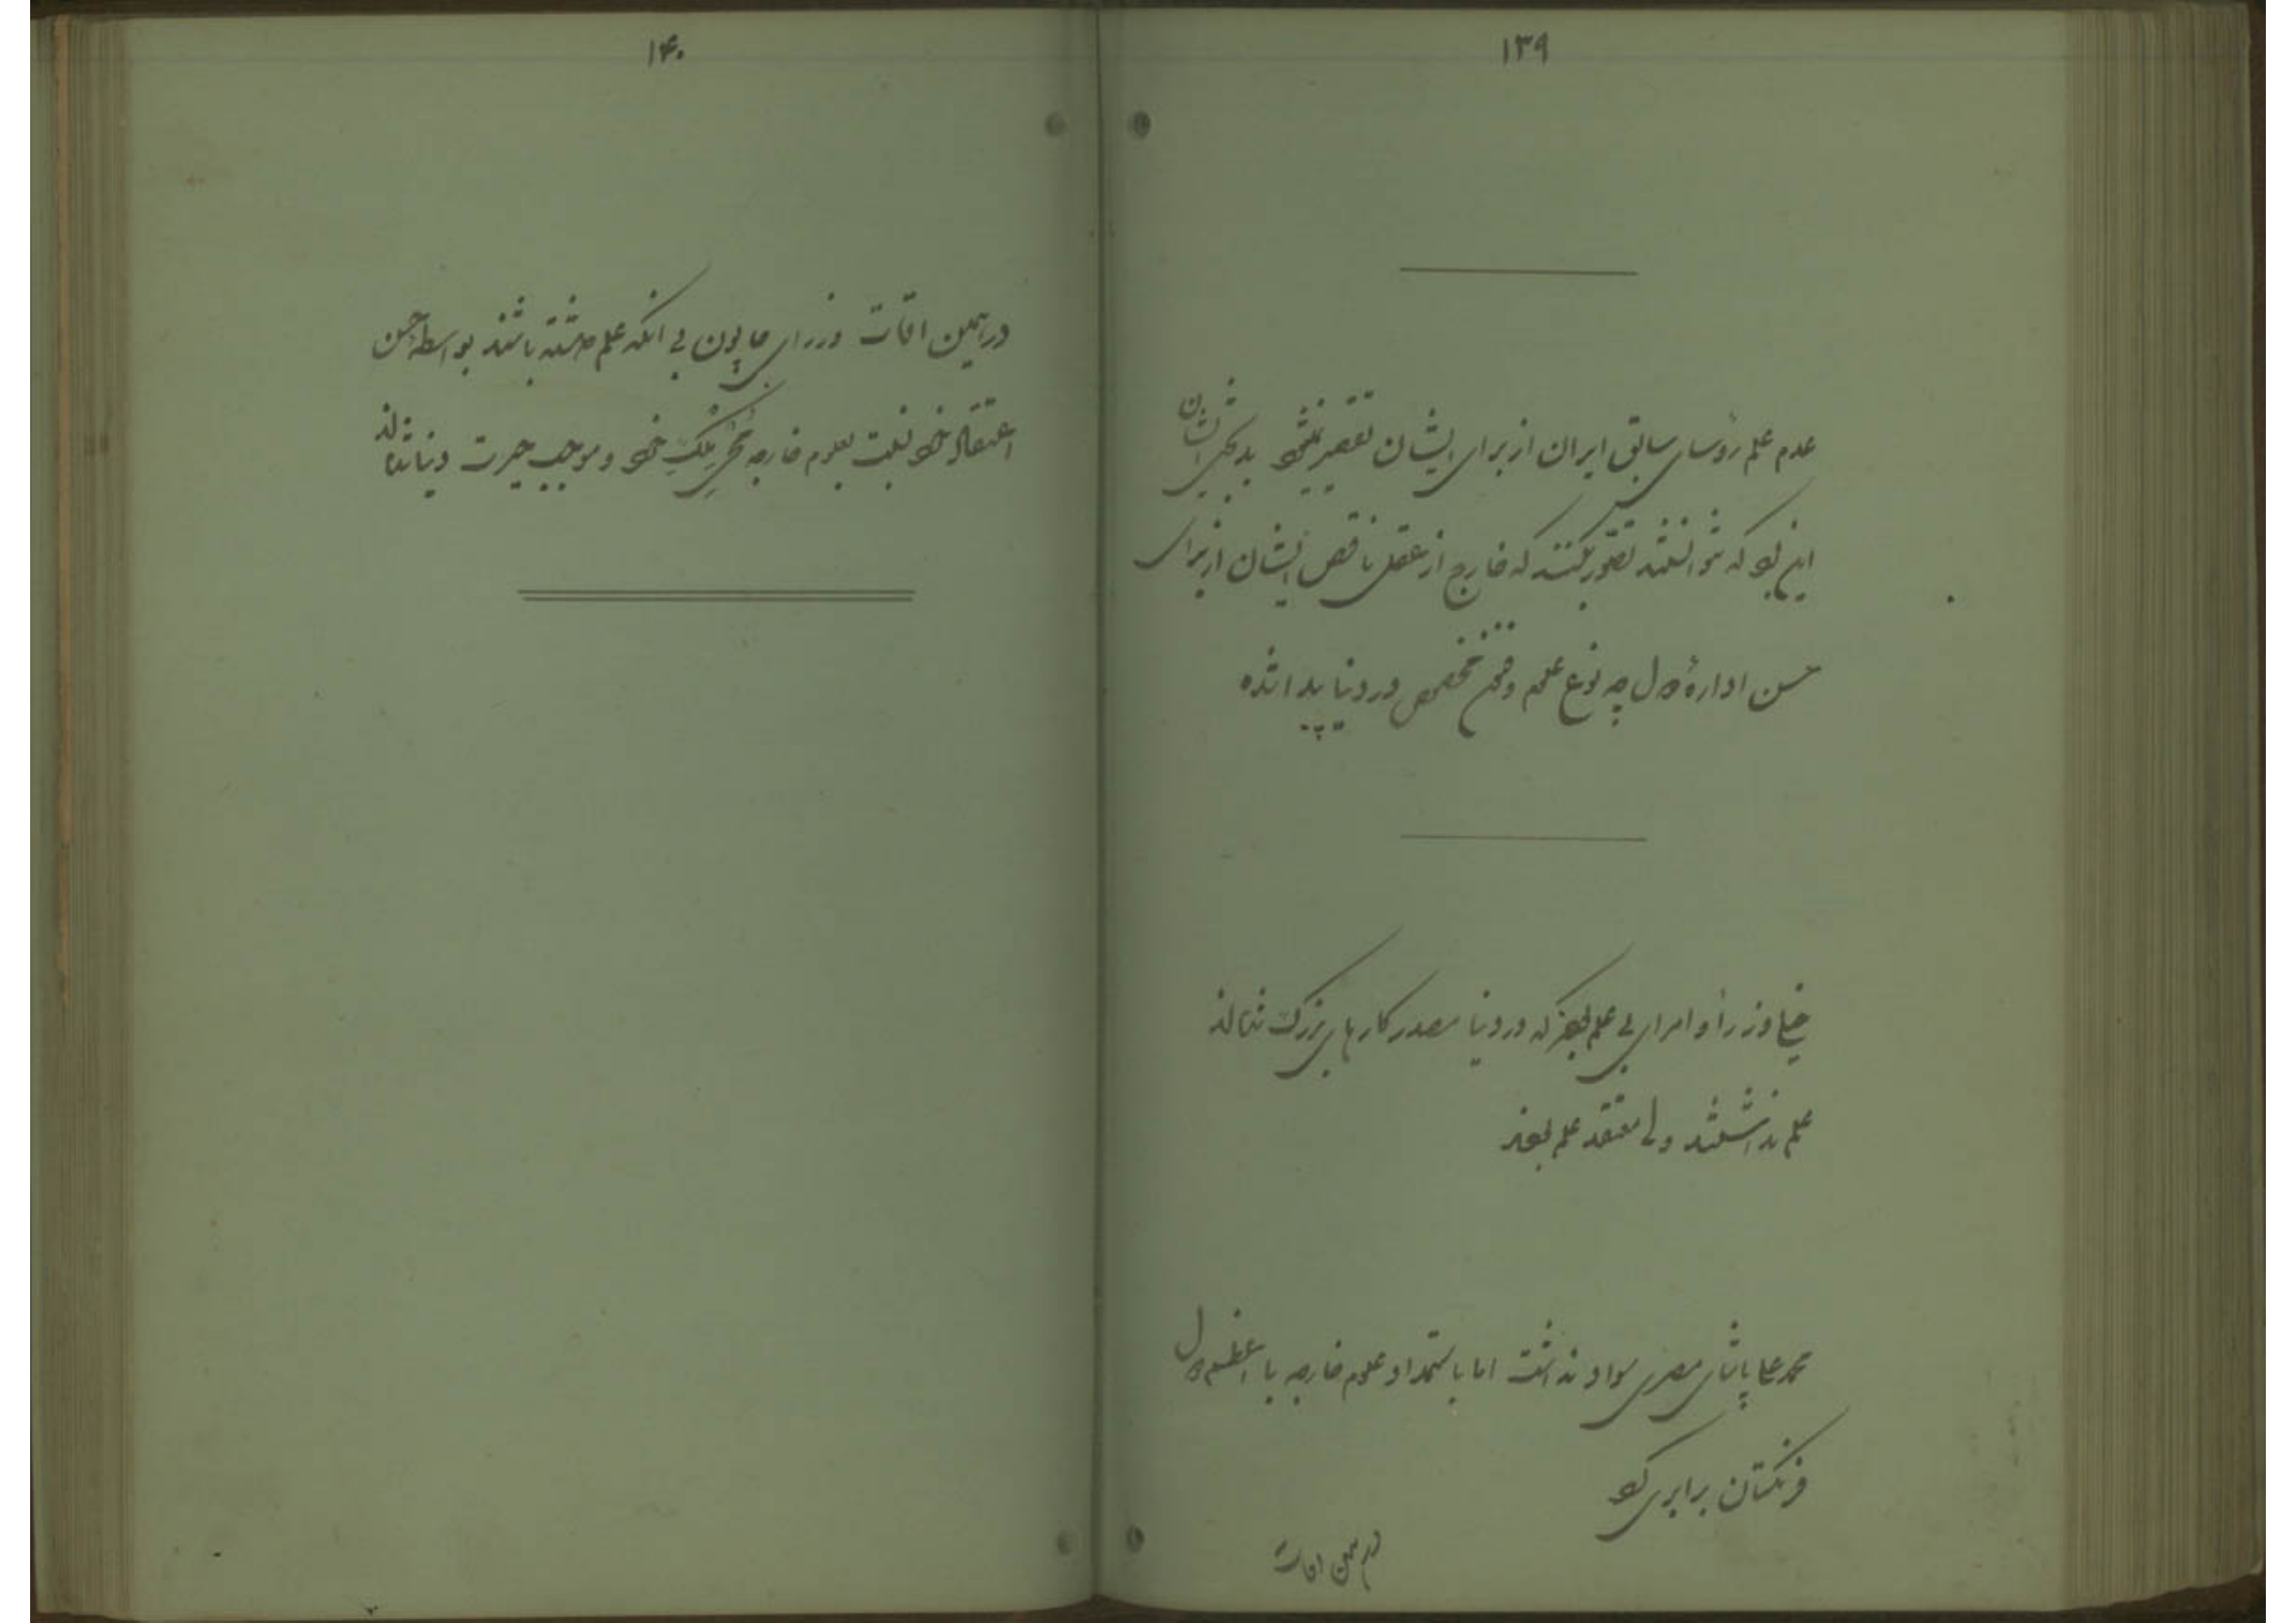 ۱۳۹
عدم علم رؤسای سابق ایران از برای ایشان تقصیر نمیشود بدبختی ایشان
این بود که نتوانستند تصور بکنند که خارج از عقل ناقص ایشان از برای
حسن ادارهٔ دول چه نوع علوم و فنون مخصوص در دنیا پیدا شده
خیلی وزرأ و امرای بی علم بودند که در دنیا مصدر کارهای بزرگ شده‌اند
علم نداشتند ولی معتقد علم بودند
محمد علی پاشای مصری سواد نداشت اما باستمداد علوم خارجه با اعظم دول
فرنگستان برابری کرد
در همین اوقات
۱۴۰
در همین اوقات وزرای جاپون بی آنکه علم داشته باشند بواسطه حسن
اعتقاد خود نسبت بعلوم خارجه محیی ملک خود و موجب حیرت دنیا شده‌اند